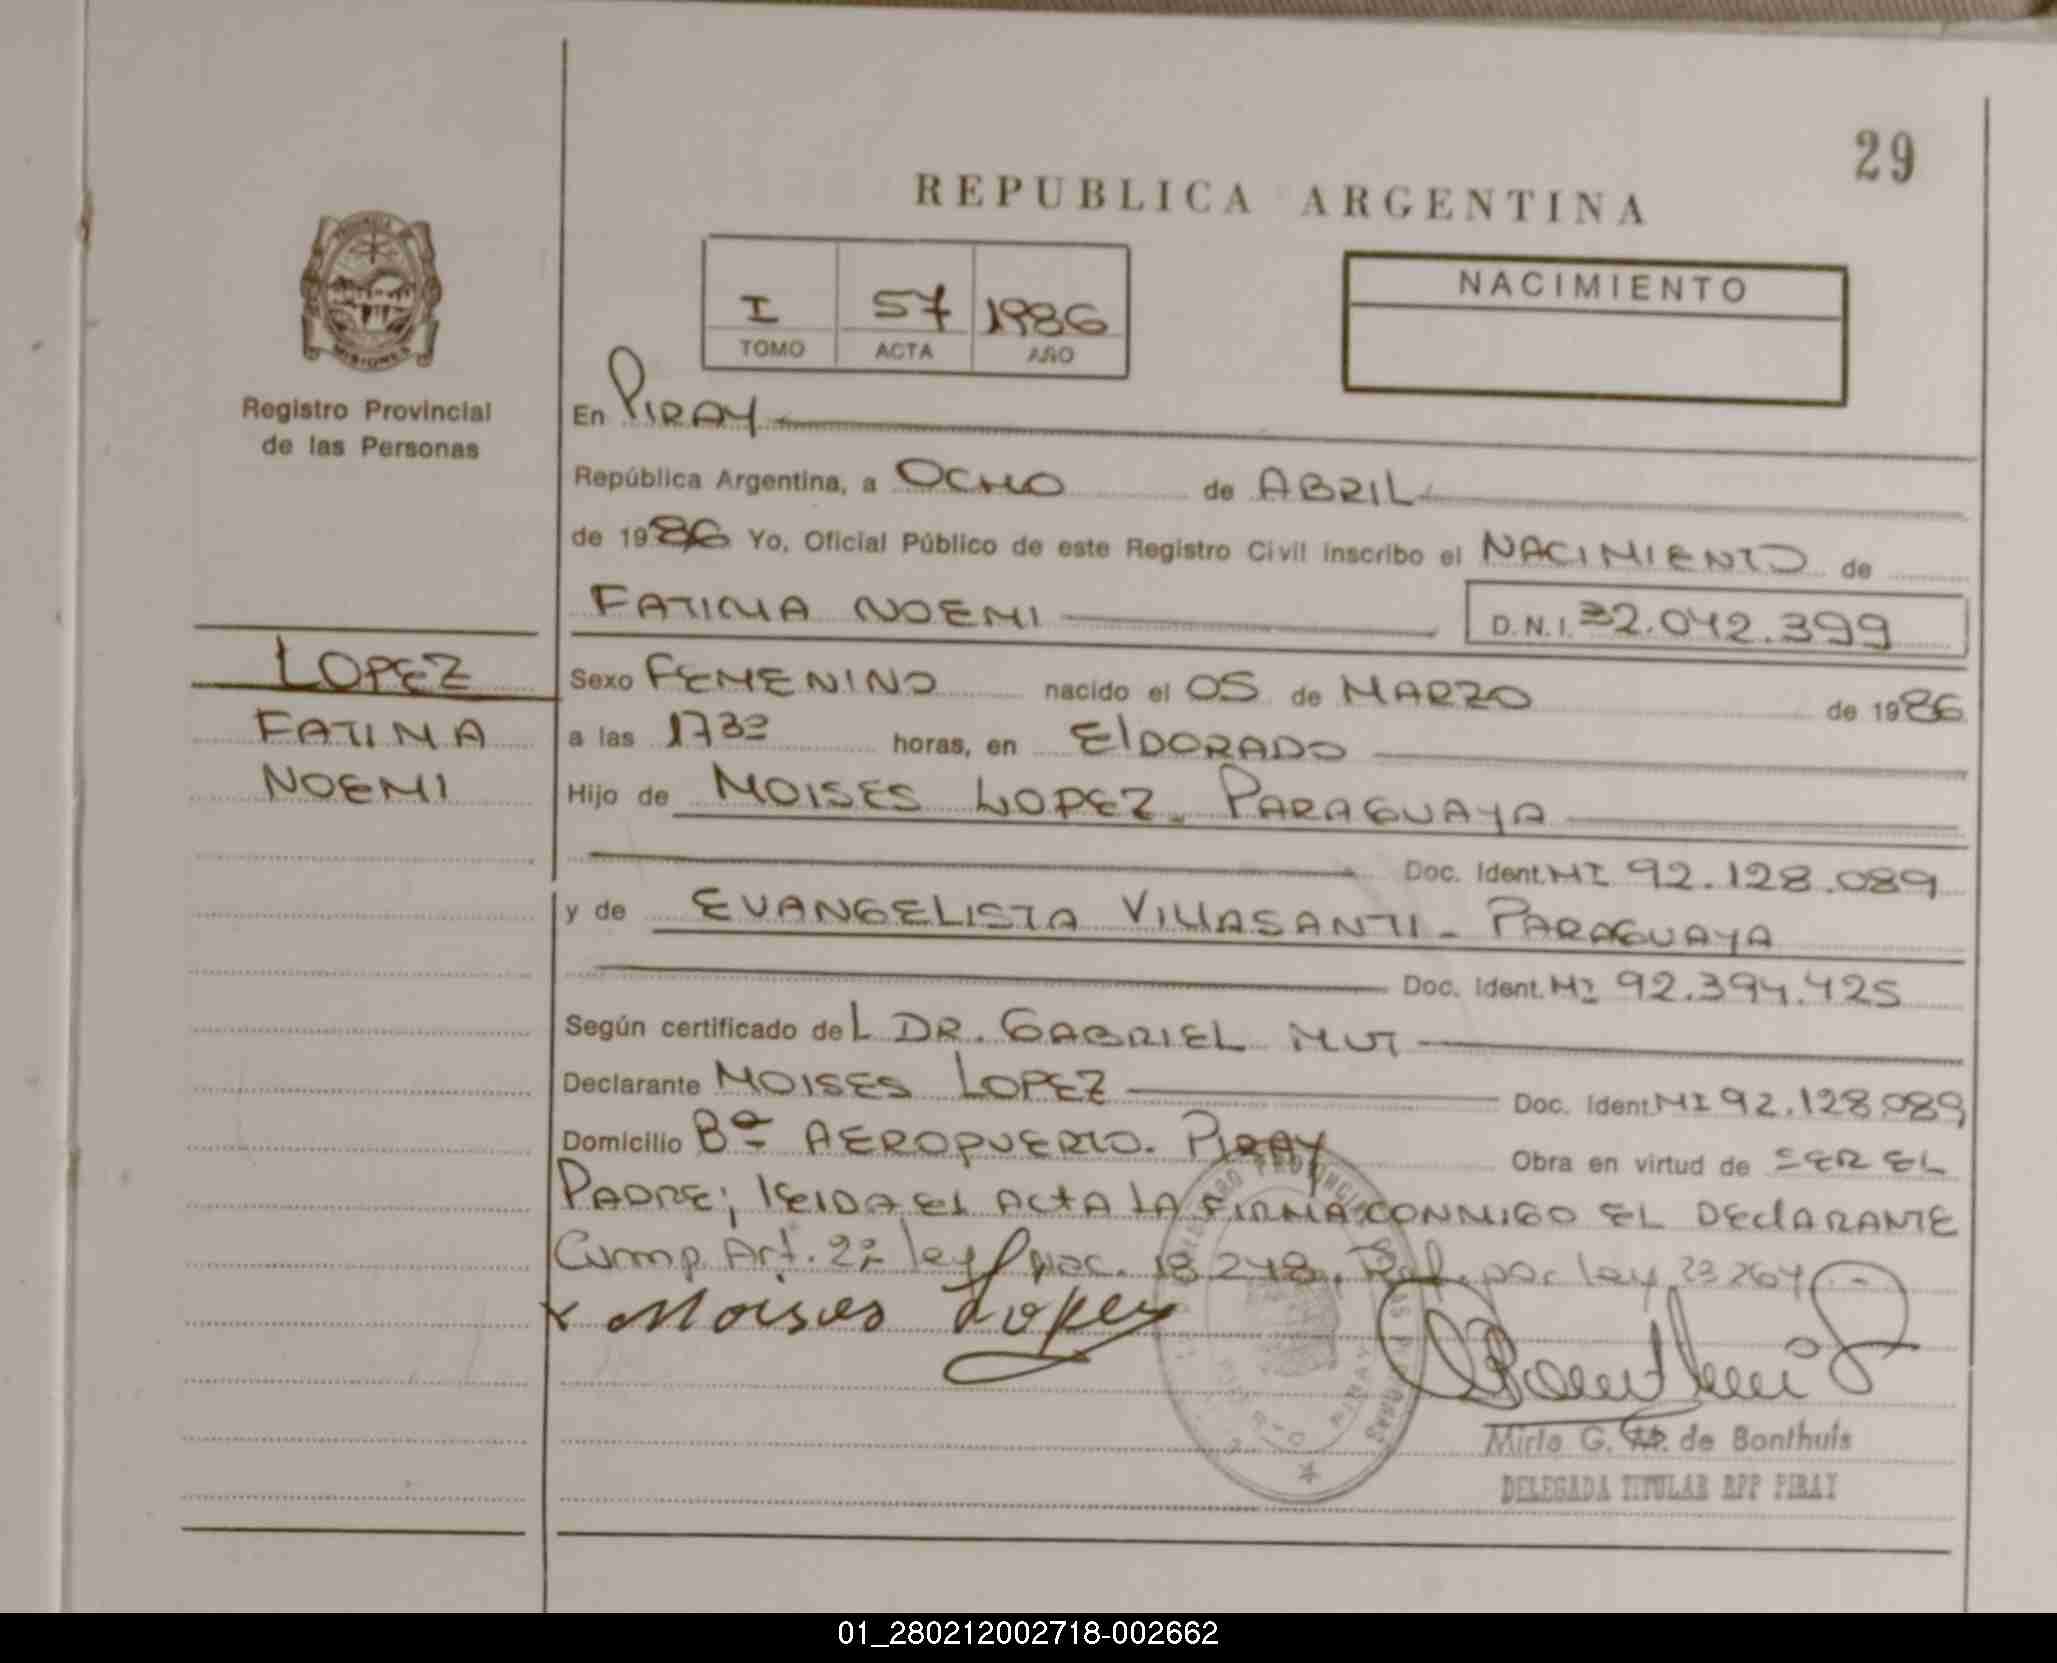 29
REPUBLICA ARGENTINA
MISIONES
Registro Provincial
de las Personas
I 57 1986
TOMO ACTA AÑO
NACIMIENTO
En PIRAY
República Argentina, a OCHO de ABRIL
de 1986 Yo, Oficial Público de este Registro Civil inscribo el NACIMIENTO de
FATIMA NOEMI D.N.I. 32.042.399
LOPEZ
FATIMA
NOEMI
Sexo FEMENINO nacido el 05 de MARZO de 1986
a las 1730 horas, en ElDORADO
Hijo de MOISES LOPEZ - PARAGUAYA
Doc. Ident. MI 92.128.089
y de EVANGELISTA VILLASANTI - PARAGUAYA
Doc. Ident. MI 92.394.425
Según certificado del DR. GABRIEL MUT
Declarante MOISES LOPEZ Doc. Ident. MI 92.128.089
Domicilio Bº AEROPUERTO. PIRAY Obra en virtud de SER EL
PADRE; lEIDA El ACTA LA FIRMA CONMIGO EL DEClARANTE
Cump. Art. 2º ley nac. 18.248. Ref. por ley 23264
x Moises Lopez
Mirta G. de Bonthuis
DELEGADA TITULAR RPP PIRAY
01_280212002718-002662